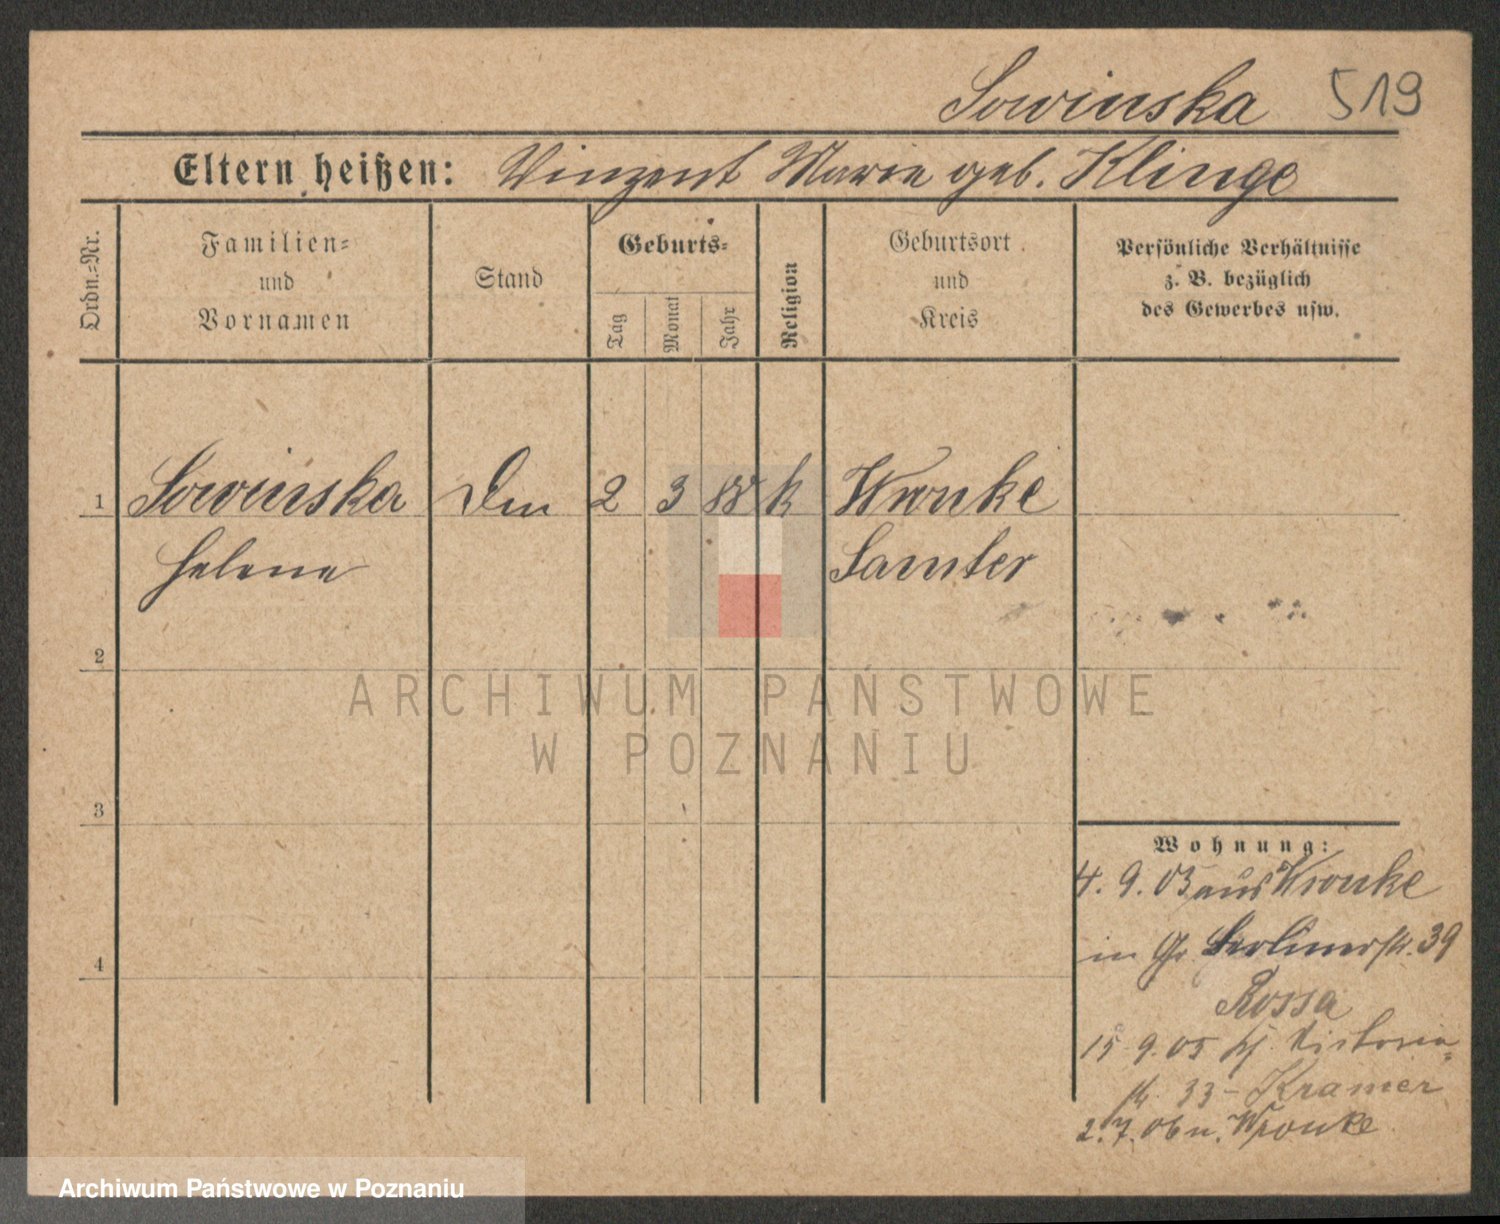 Sowinska 519
Eltern heißen: Vinzent Marie geb. Klinge
Ordn.-Nr.
Familien-
und
Vornamen
Stand
Geburts-
Tag
Monat
Jahr
Religion
Geburtsort
und
Kreis
Persönliche Verhältnisse
z. B. bezüglich
des Gewerbes usw.
1 Sowinska 2 3 88 k Wronke
Helene Samter
2
ARCHIWUM PAŃSTWOWE
W POZNANIU
3
Wohnung:
4. 9. 03 aus Wronke
in Gr. Berlinerstr. 39
4
Rossa
15. 9. 05 Victoria-
str. 33 - Kramer
2. 7. 06 n. Wronke
Archiwum Państwowe w Poznaniu